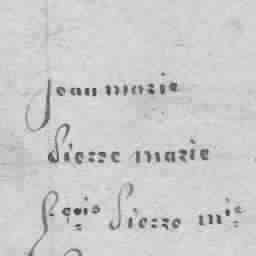 Jean marie
Pierre marie
f.çois Pierre m.ie